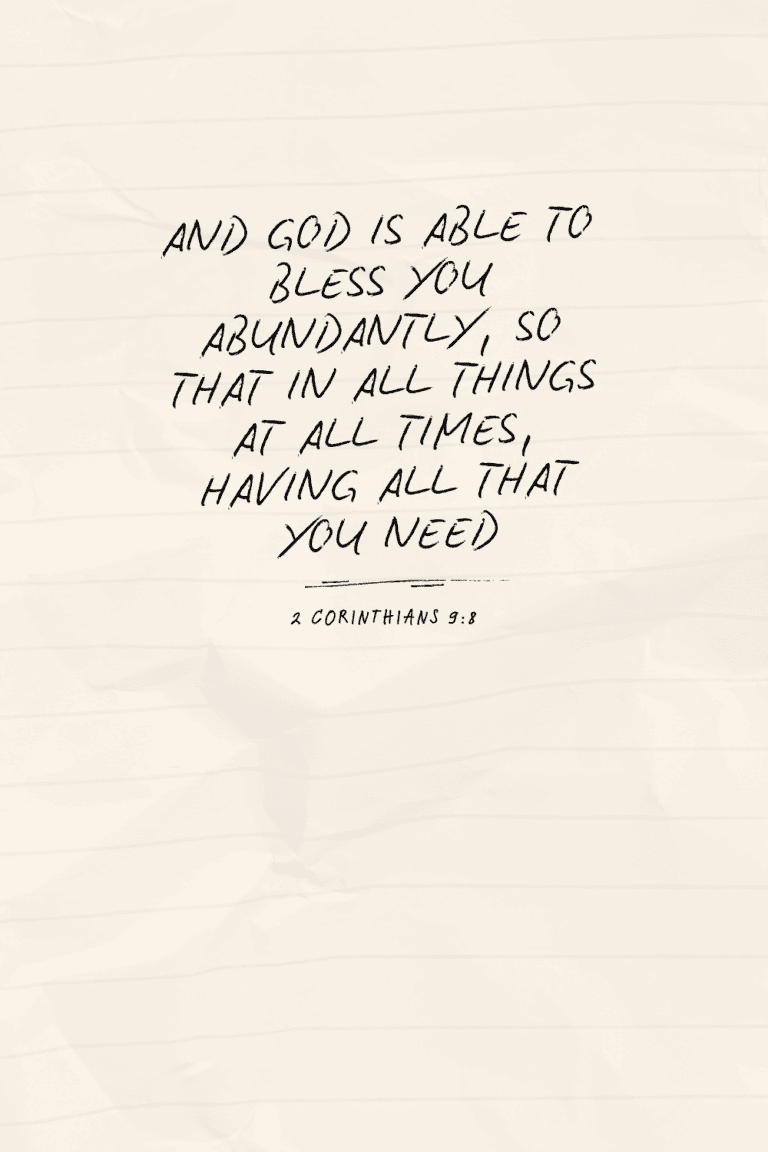 AND GOD IS ABLE TO
BLESS YOU
ABUNDANTLY, SO
THAT IN ALL THINGS
AT ALL TIMES,
HAVING ALL THAT
YOU NEED
2 CORINTHIANS 9:8